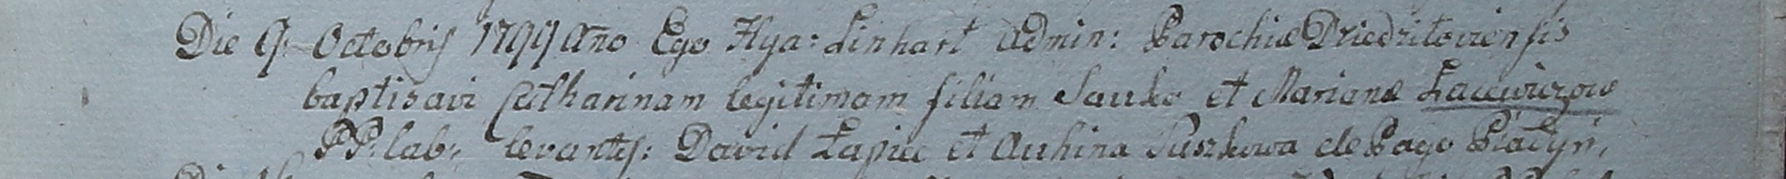 Die 9: Octobris 1799 Año Ego Hya: Linhart Admin: Parochiæ Driedzitoviensis
baptisavi Catharinam legitimam filiam Sauko et Marianæ Lacewiczow
PP: lab: levantes: David Łapiec et Auhina Puszkowa de Pago Piatyń,